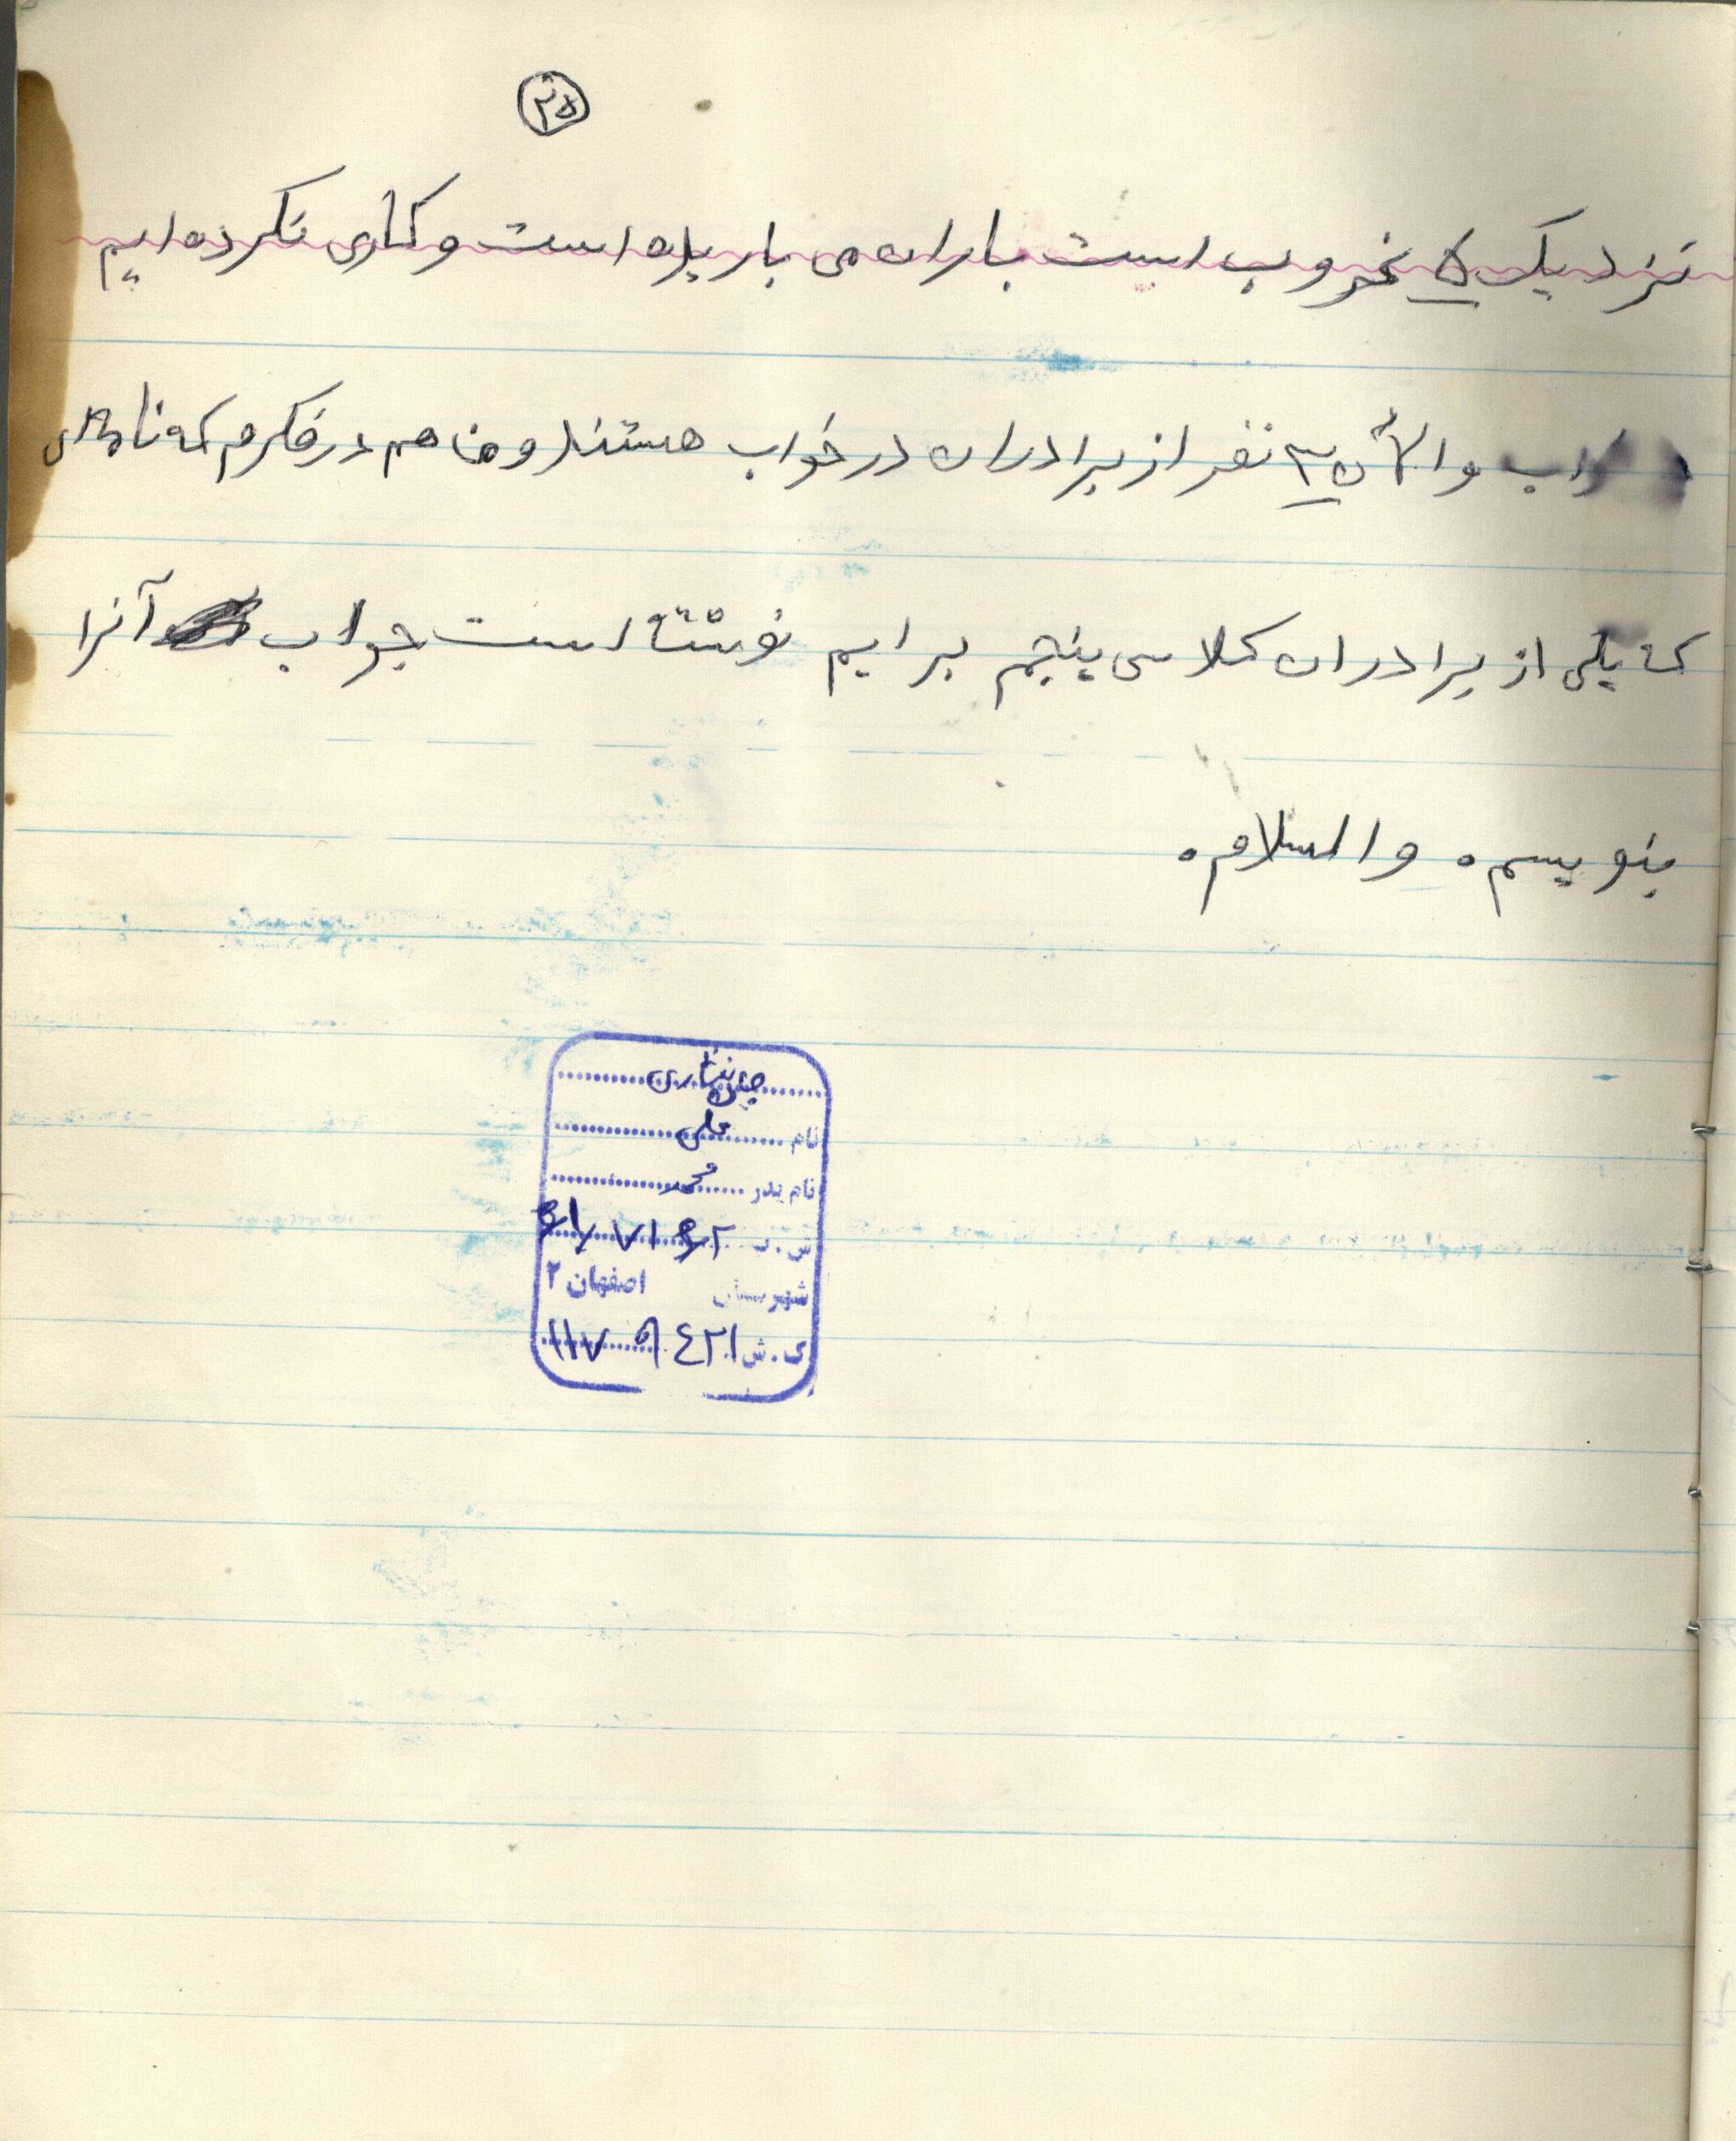 ۲۵
نزدیک ۵ غروب است باران می باریده است و کاری نکرده ایم
والأن ۳ نفر از برادران در خواب هستند و من هم در فکرم که نامه ای
که یکی از برادران کلاس پنجم برایم نوشته است جواب آنرا
بنویسم. والسلام.
جان نثاری
نام علی
نام پدر محمد
ش.پ
شهرستان اصفهان ۲
ک.ش